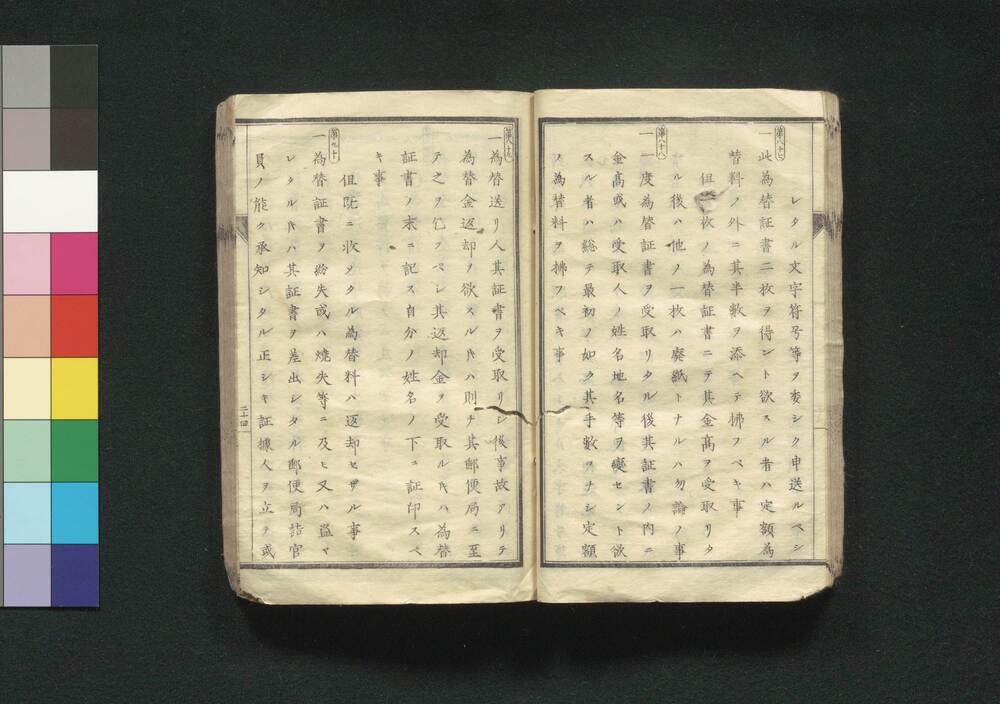 レタル文字符号等ヲ委シク申送ルベシ
第八十七
一此為替証書二枚ヲ得ント欲スル者ハ定額為
替料ノ外ニ其半数ヲ添ヘテ拂フベキ事
但一枚ノ為替証書ニテ其金高ヲ受取リタ
ル後ハ他ノ一枚ハ廃紙トナルハ勿論ノ事
第八十八
一一度為替証書ヲ受取リタル後其証書ノ内ニ
金高或ハ受取人ノ姓名地名等ヲ變セント欲
スル者ハ総テ最初ノ如ク其手數ヲナシ定額
ノ為替料ヲ拂フベキ事
第八十九
一為替送リ人其証書ヲ受取リシ後事故アリテ
為替金返却ヲ欲スル片ハ則チ其郵便局ニ至
テ之ヲ乞フベシ其返却金ヲ受取ル片ハ為替
証書ノ末ニ記ス自分ノ姓名ノ下ニ証印スベ
キ事
但既ニ收メタル為替料ハ返却セザル事
第九十
一為替証書ヲ紛失或ハ焼失等ニ及ヒ又ハ盗マ
レタル片ハ其証書ヲ差出シタル郵便局詰官
員ノ能ク承知シタル正シキ証據人ヲ立テ或
二十四